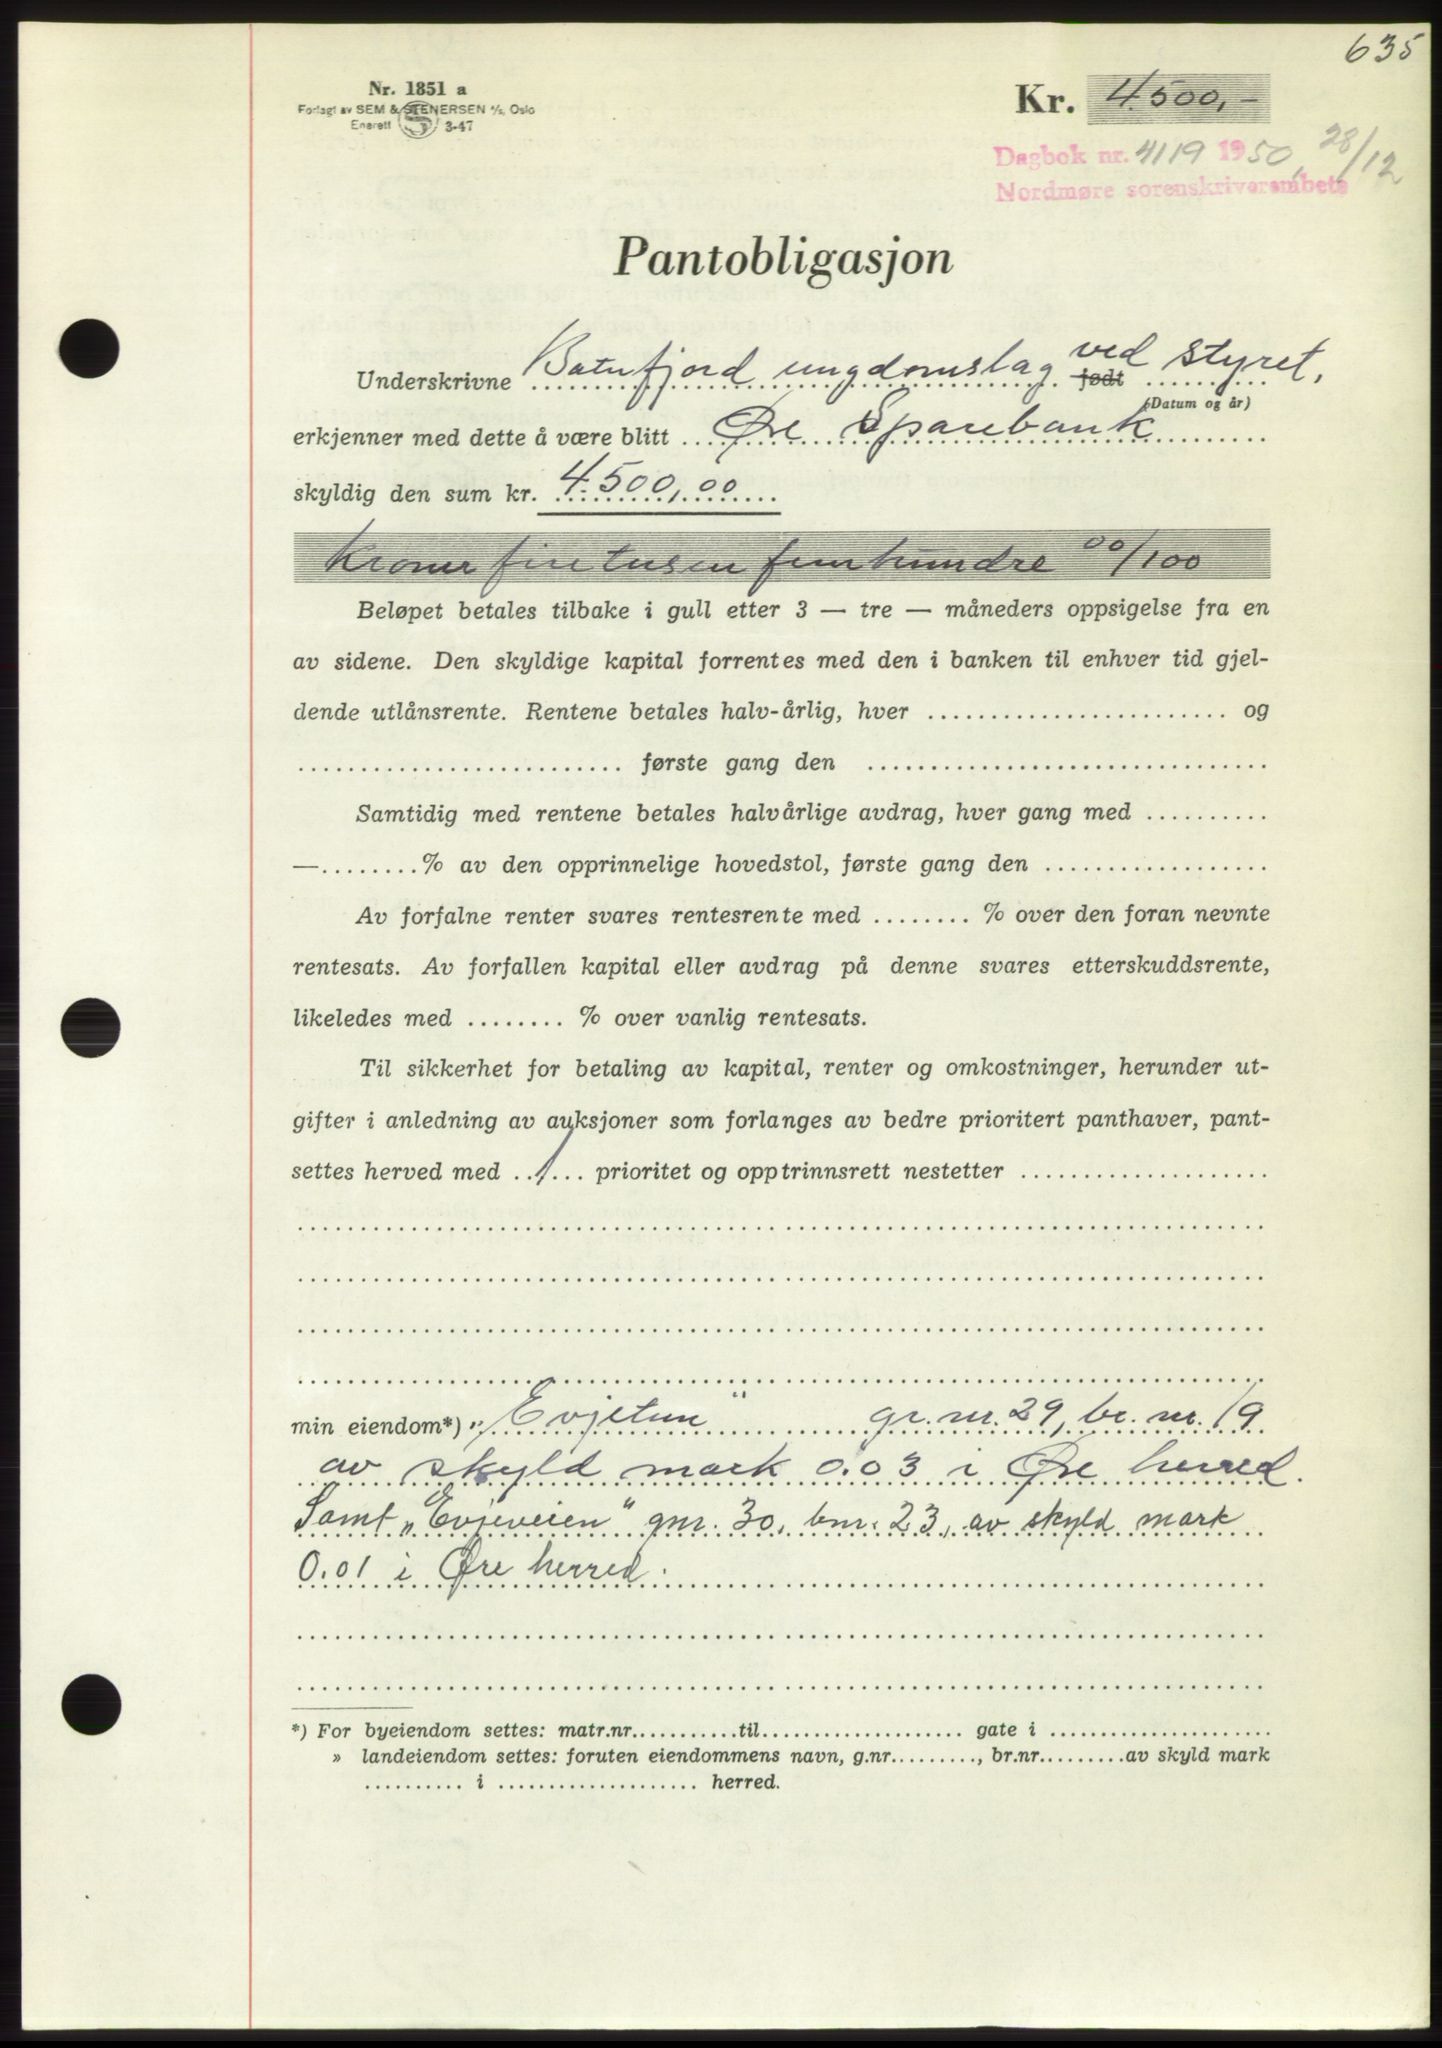 635
Nr. 1851 a
Forlagt av SEM & STENERSEN A/S, Oslo
Enerett 3-47
Kr. 4.500,-
Dagbok nr. 4119 1950, 28/12
Nordmøre sorenskriverembete
Pantobligasjon
Underskrivne Batnfjord ungdomslag født ved styret,
(Datum og år)
erkjenner med dette å være blitt Øre Sparebank
skyldig den sum kr. 4.500,00
Kroner firetusenfemhundre 00/100
Beløpet betales tilbake i gull etter 3 — tre — måneders oppsigelse fra en
av sidene. Den skyldige kapital forrentes med den i banken til enhver tid gjel-
dende utlånsrente. Rentene betales halv-årlig, hver ........................ og
.......................... første gang den ................................
Samtidig med rentene betales halvårlige avdrag, hver gang med ..........
—........% av den opprinnelige hovedstol, første gang den ..................
Av forfalne renter svares rentesrente med ........ % over den foran nevnte
rentesats. Av forfallen kapital eller avdrag på denne svares etterskuddsrente,
likeledes med ........ % over vanlig rentesats.
Til sikkerhet for betaling av kapital, renter og omkostninger, herunder ut-
gifter i anledning av auksjoner som forlanges av bedre prioritert panthaver, pant-
settes herved med ..1... prioritet og opptrinnsrett nestetter ....................
min eiendom*) „Evjetun" gr. nr. 29, br. nr. 19
av skyld mark 0.03 i Øre herred.
Samt „Evjeveien" gnr. 30, bnr. 23, av skyld mark
0.01 i Øre herred.
*) For byeiendom settes: matr.nr...........til.................... gate i ......................
» landeiendom settes: foruten eiendommens navn, g.nr........., br.nr.........av skyld mark
.......... i .................... herred.